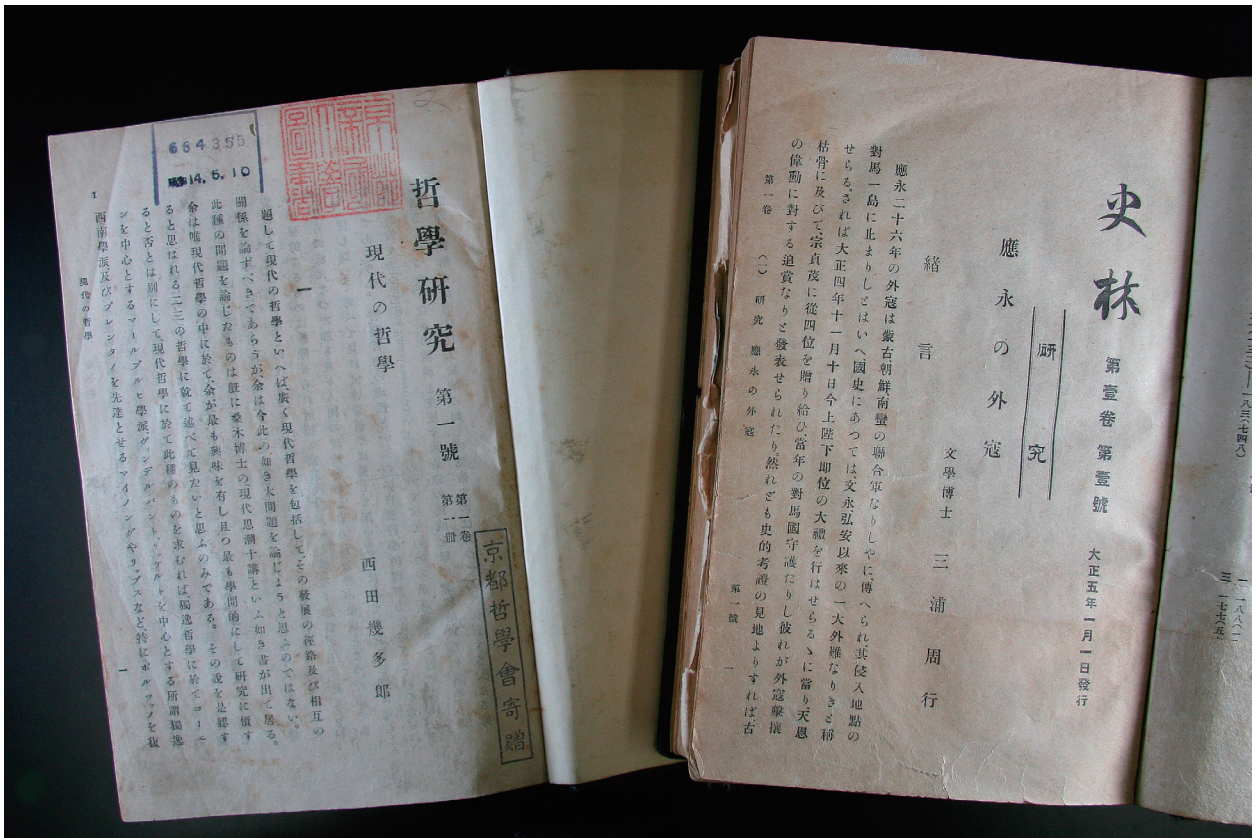 史林 第壹卷 第壹號 大正五年一月一日發行
研究
應永の外寇
文學博士 三浦周行
緒言
應永二十六年の外寇は蒙古朝鮮南蠻の聯合軍なりしやに傳へられ、其侵入地點の
對馬一島に止まりしとはいへ國史にあつては、文永弘安以來の一大外難なりきと稱
せらる。されば大正四年十一月十日今上陛下即位の大禮を行はせらるゝに當り、天恩
枯骨に及びて、宗貞茂に從四位を贈り給ひ、當年の對馬國守護たりし彼れが外寇擊攘
の偉勳に對する追賞なりと發表せられたり。然れども史的考證の見地よりすれば古
第一卷 (一) 研究 應永の外寇 第一號 一
哲學研究 第一號 第一卷 第一冊
京都哲學會寄贈
現代の哲學
西田幾多郎
一
題して現代の哲學といへば、廣く現代哲學を包括して、その發展の徑路及び相互の
關係を論ずべきであらうが、余は今此の如き大問題を論じようと思ふのではない。
此種の問題を論じたものは旣に桑木博士の現代思潮十講といふ如き書が出て居る。
余は唯現代哲學の中に於て、余が最も興味を有し且つ最も學問的にして研究に價す
ると思はれる二三の哲學に就て述べて見たいと思ふのみである。その說を是認す
ると否とは別にして、現代哲學に於て此種のものを求むれば、獨逸哲學に於てコーエ
ンを中心とするマールブルヒ學派、ヴィンデルバント、リッケルトを中心とする所謂獨逸
西南學派及びブレンタノを先達とせるマイノングやリップスなど、特にボルツァノを復
現代の哲學 一
1
664355
14.5.10